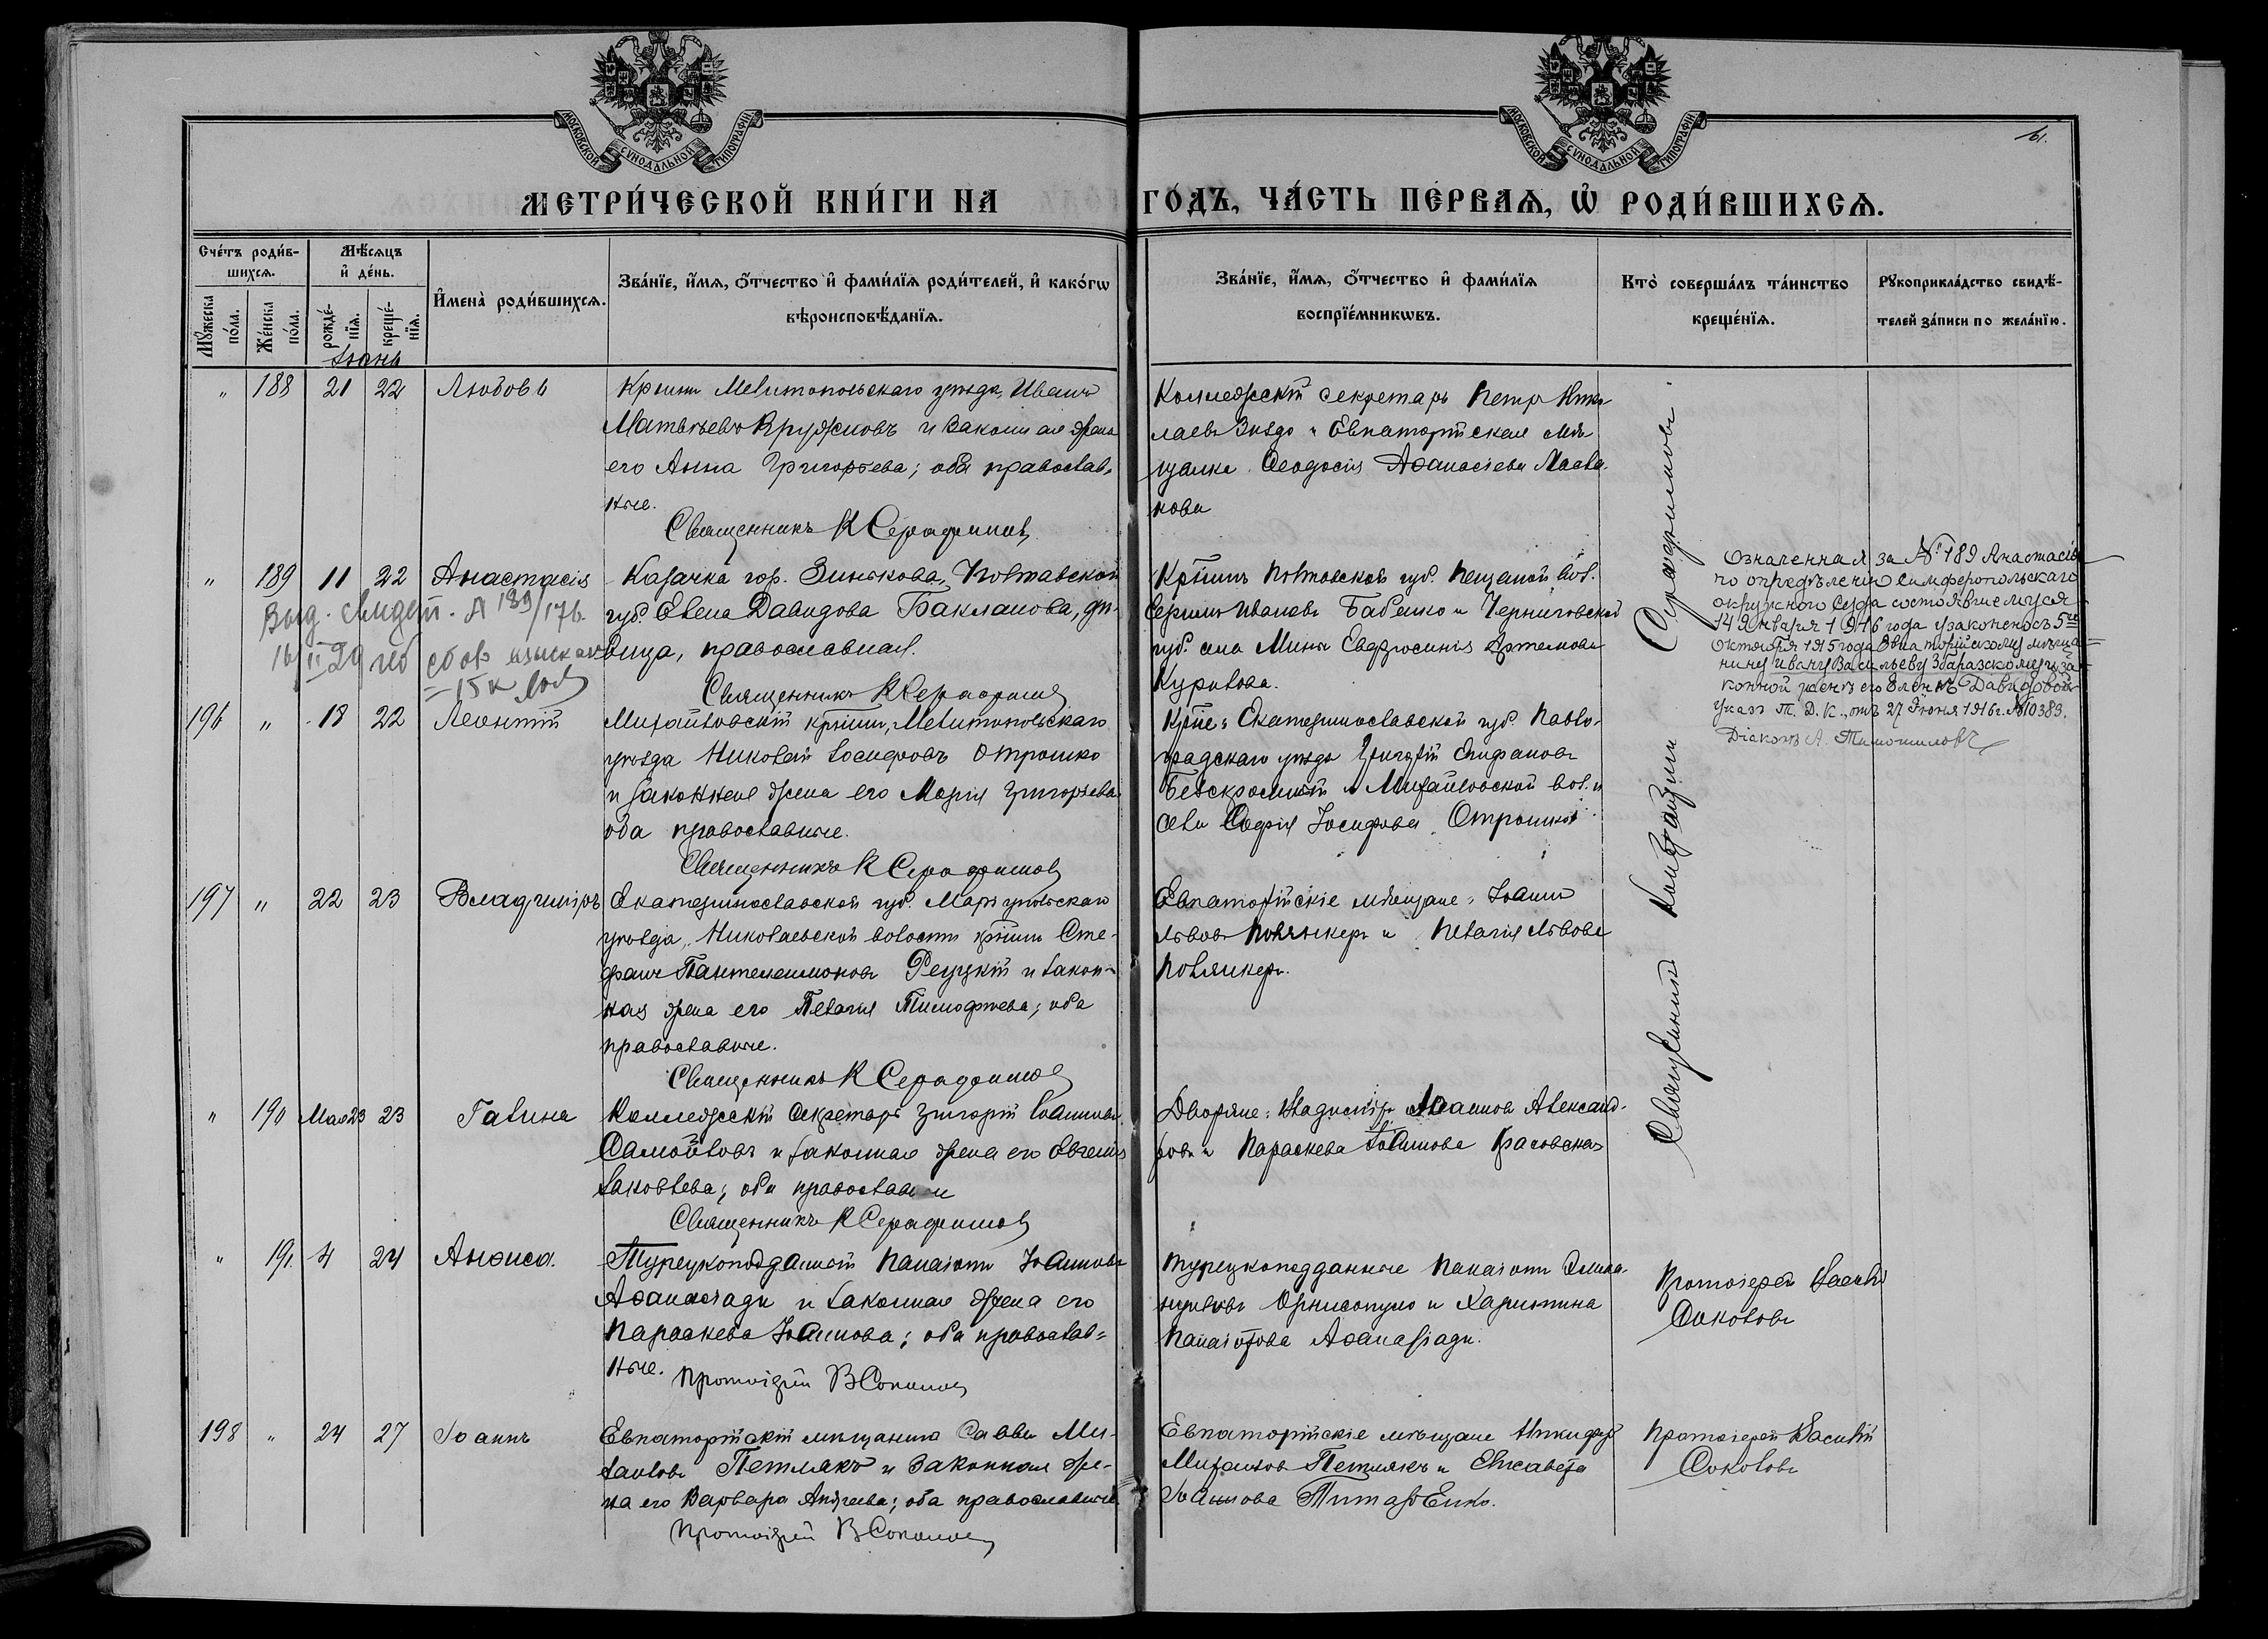 МОСКОВСКОЙ СѴНОДАЛЬНОЙ ТИПОГРАФІИ
МОСКОВСКОЙ СѴНОДАЛЬНОЙ ТИПОГРАФІИ
МЕТРИ́ЧЕСКОЙ КНИ́ГИ НА ГО́ДЪ, ЧА́СТЬ ПЕ́РВАѦ, Ѡ҆ РОДИ́ВШИХСѦ.
Сче́тъ роди́в-
шихсѧ.
Мѣ́сѧцъ
и҆ де́нь.
И҆мена̀ роди́вшихсѧ.
Зва́нїе, и҆́мѧ, ѻ҆́тчество и҆ фами́лїѧ роди́телей, и҆ како́гѡ
вѣроисповѣ́данїѧ.
Зва́нїе, и҆́мѧ, ѻ҆́тчество и҆ фами́лїѧ
воспрїе́мникѡвъ.
Кто̀ соверша́лъ та́инство
креще́нїѧ.
Рꙋкоприкла́дство свидѣ́-
телей за́писи по жела́нїю.
Мꙋ́жеска по́ла.
Же́нска по́ла.
рожде́-нїѧ.
креще́-нїѧ.
Іюнь
" 188 21 22 Любовь
Крестн Мелитопольскаго уѣзда, Иванъ
Матвѣевъ Кружновъ и законная жена
его Анна Григорьева; оба православ-
ные.
Священникъ К Серафимовъ
Коллежскій секретарь Петръ Нико-
лаевъ и Евпаторійская мѣ-
щанка Ѳеодосія Аѳанасіева
кова
" 189 11 22 Анастасія
Казачка гор. Зинькова, Полтавской
губ. Елена Давидова Бакланова, дѣ-
вица, православная.
Священникъ К Серафимовъ
Выд. свидет. А 189/176.
16/II 29 сбор взыскан
15 к
Крестн Полтавской губ. Пещаной вол.
Сергій Ивановъ Бабенко и Черниговской
губ. села Мины Евфросинія Артемова
Курилова.
Означенная за № 189 Анастасія
по опредѣленію Симферопольскаго
окружного Суда состоявшемуся
14 Января 1916 года узаконена съ 5го
Октября 1915 года Евпаторійскому мѣща-
нину Ивану Васильеву Збаразскому и за-
конной женѣ его Еленѣ Давидовой
Указъ Т. Д. К., отъ 27 Іюня 1916 г. № 10383.
Діаконъ А.
196 " 18 22 Леонтій
Михайловскій крестн, Мелитопольскаго
уѣзда Николай Іосифовъ Отрошко
и законная жена его Марія Григорьева
оба православные.
Священникъ К Серафимовъ
Крестне: Екатеринославской губ. Павло-
градскаго уѣзда Григорій Епифановъ
Безкровный и Михайловской вол. и
села Софія Іосифова Отрошко
197 " 22 23 Владиміръ
Екатеринославской губ. Маріупольскаго
уѣзда, Николаевской волости крестн Сте-
фанъ Пантелеимоновъ Рецукій и закон-
ная жена его Пелагія Тимофѣева; оба
православные.
Священникъ К Серафимовъ
Евпаторійскіе мѣщане: Іоаннъ
Львовъ Полянкеръ и Пелагія Львова
Полянкеръ.
Священникъ Константинъ Серафимовъ
" 190 Мая 23 23 Галина
Коллежскій Секретарь Григорій Іоанновъ
Самойловъ и законная жена его Евгенія
Іаковлева; оба православн
Священникъ К Серафимовъ
Дворяне: Владиміръ Іоанновъ Александ-
ровъ и Параскева Іоаннова Красовская
" 191. 4 24 Анѳиса.
Турецкоподданый Панаіотъ Іоанновъ
Аѳанасіади и законная жена его
Параскева Іоаннова; оба православ-
ные.
Протоіерей В Соколовъ
Турецкоподданные Панаіотъ
и Харитина
Панаіотова Аѳанасіади.
Протоіерей Василій
Соколовъ
198 " 24 27 Іоаннъ
Евпаторійскій мѣщанинъ Савва Ми-
хаиловъ Петлякъ и законная же-
на его Варвара Андреева; оба православные
Протоіерей В Соколовъ
Евпаторійскіе мѣщане Никифоръ
Михаиловъ Петлякъ и Елисавета
Іоаннова Титаренко.
Протоіерей Василій
Соколовъ